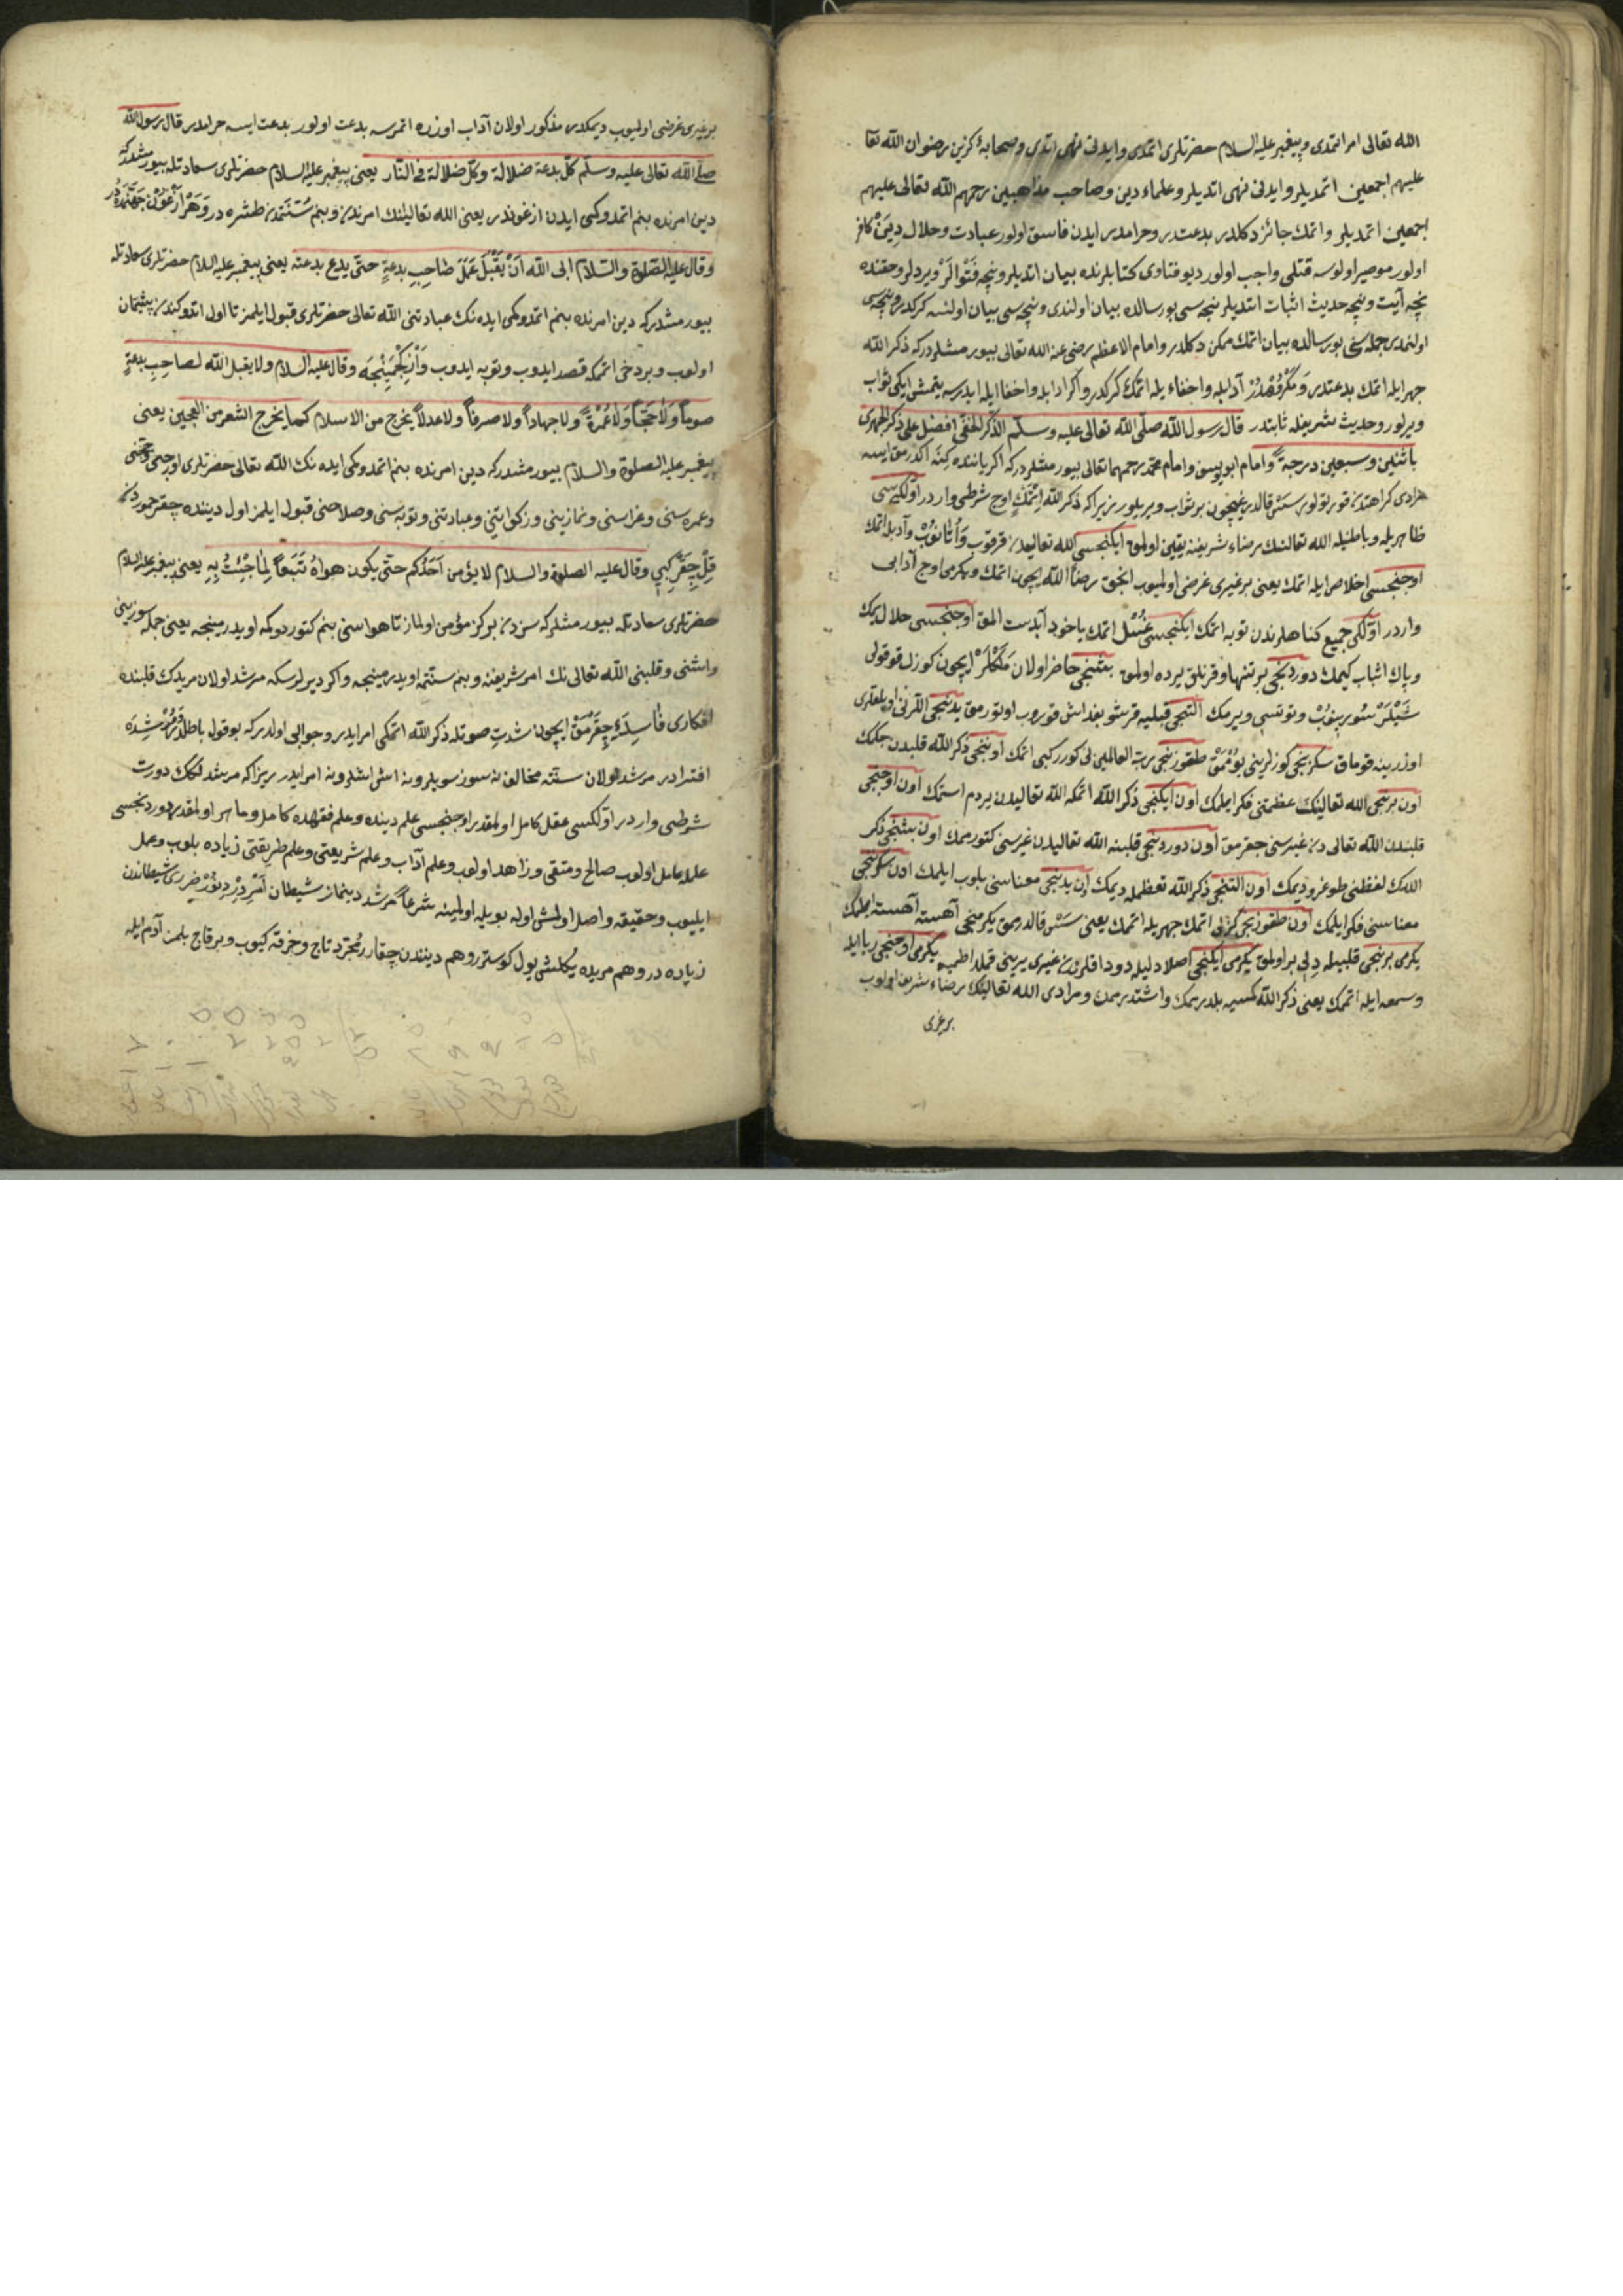 الله تعالی امر اتمدی و پیغمبر علیه السلام حضرتلری اتمدی وایدنی نهی اتدی وصحابۀ کزین رضوان الله تعا
علیهم اجمعین اتمدیلر وایدنی نهی اتدیلر وعلماء دین وصاحب مذاهبین رحمهم الله تعالی علیهم
اجمعین اتمدیلر واتمك جائز دکلدر بدعتدر وحرامدر ایدن فاسق اولور عبادت وحلال دین کافر
اولور موصر اولوسه قتلی واجب اولور دیو فتاوی کتابلرنده بیان اتدیلر ونیچه فتوالر ویردلر وحقنده
نیچه آیت ونیچه حدیث اثبات اتدیلر نیجه سی بورسالده بیان اولندی ونیچه سی بیان اولنسه کرکدر ونیچه سی
اولنمدی جمله سنی بورسالده بیان اتمك ممکن دکلدر وامام الاعظم رضی عنه الله تعالی بیورمشلردرکه ذکر الله
جهرایله اتمك بدعتدر ومکروهدر آدابله واخفاء یله اتمك کرکدر واکر ادابله واخفا ایله ایدرسه یتمش ایکی ثواب
ویرلور وحدیث شریفله ثابتدر قال رسول الله صلی الله تعالی علیه وسلم الذکر الخفی افضل علی ذکر الجهری
باثنین وسبعین درجة وامام ابو یوسف وامام محمد رحمهما تعالی بیورمشلردرکه اکر یاننده کمنه اکدرمق ایسه
مرادی کراهتدن قورتولور سس قالدردیغیچون بر ثواب ویریلور زیراکه ذکر الله اتمك اوچ شرطی واردر اولکیسی
ظاهریله وباطنیله الله تعالنك رضاء شریفنه یقین اولمق ایکنجسی الله تعالیدن قورقوب واوتانوب وآدبله اتمك
اوجنجسی اخلاص ایله اتمك یعنی بر غیری غرضی اولمیوب انجق رضاء الله ایچون اتمك ویکرمی اوچ آدابی
واردر اولکی جمیع کناهلرندن توبه اتمك ایکنجسی غسل اتمك یاخود آبدست المق اوجنجسی حلال یمك
وپاك اثباب کیمك دوردنجی بر تنها وقرنلق یرده اولمق بشنجی حاضر اولان ملکلر ایچون کوزل قوقولی
شیلر سورینوب وتوتسی ویرمك التنجی قبلیه قرشو بغداش قوروب اوتورمق یدنجی اللرنی اویلقلری
اوزرینه قوماق سکزنجی کوزلرینی یوممق طقوزنجی رب العالمین لی کورر کبی اتمك اوننجی ذکر الله قلبدن چکمك
اون برنجی الله تعالینك عظمتنی فکر ایلمك اون ایکنجی ذکر الله اتمکه الله تعالیدن یردم استمك اون اوجنجی
قلبندن الله تعالی دن غیرسنی چقرمق اون دوردنجی قلبنه الله تعالیدن غیرسنی کتورممك اون بشنجی ذکر
اللهك لفظنی طوغرو دیمك اون التنجی ذکر الله تعظیمله دیمك اون یدنجی معناسنی بلوب ایلمك اون سکزنجی
معناسنی فکر ایلمك اون طقوزنجی کزلی اتمك جهریله اتممك یعنی سس قالدرممق یکرمنجی آهسته آهسته ایلمك
یکرمی برنجی قلبیله دلی بر اولمق یکرمی ایکنجی اصلا دلیله دوداقلرندن غیری یرینی قملداتممق یکرمی اوجنجی ریا ایله
وسمعه ایله اتممك یعنی ذکر الله کمسیه بلدرممك واشتدرممك ومرادی الله تعالینك رضاء شریفی اولوب
بر غیری
بر غیری غرضی اولمیوب دیمکدر مذکور اولان آداب اوزره اتمرسه بدعت اولور بدعت ایسه حرامدر قال رسول الله
صلی الله تعالی علیه وسلم کل بدعة ضلالة وکل ضلالة فی النار یعنی پیغمبر علیه السلام حضرتلری سعادتله بیورمشدرکه
دین امرنده بنم اتمدوکمی ایدن ازغوندر یعنی الله تعالینك امرندن وبنم سنتمدن طشره در وهر ازغون جهنمده در
وقال علیه الصلوة والسلام ابی الله ان یقبل عمل صاحب بدعة حتی یدع بدعته یعنی پیغمبر علیه السلام حضرتلری سعادتله
بیورمشدرکه دین امرنده بنم اتمدوکمی ایده نك عبادتنی الله تعالی حضرتلری قبول ایلمز تا اول اتدوکندن پیشمان
اولوب وبر دخی اتممکه قصد ایدوب وتوبه ایدوب وازکجمینجه وقال علیه السلام ولا یقبل الله لصاحب بدعة
صوما ولا حجا ولا عمرة ولا جهادا ولا صرفا ولا عدلا یخرج من الاسلام کما یخرج الشعر من العجین یعنی
پیغمبر علیه الصلوة والسلام بیورمشدرکه دین امرنده بنم اتمدوکمی ایده نك الله تعالی حضرتلری اورجنی وحجنی
وعمره سنی وغزاسنی ونمازینی وزکواتنی وعبادتنی وتوبه سنی وصلاحنی قبول ایلمز اول دیننده چقر خموردن
قل چقر کبی وقال علیه الصلوة والسلام لا یؤمن احدکم حتی یکون هواه تبعا لما جئت به یعنی پیغمبر علیه السلام
حضرتلری سعادتله بیورمشدرکه سزدن برکز مؤمن اولماز تا هواسنی بنم کتوردوکمه اویدرمینجه یعنی جمله سوزینی
واشنی وقلبنی الله تعالی نك امر شریفنه وبنم سنتمه اویدرمینجه واکر دیرلرسکه مرشد اولان مریدك قلبنده
افکاری فاسده چقرمق ایچون شدت صوتله ذکر الله اتمکی امر ایدر وجوابی اولدرکه بوقول باطلدر ومرشده
افترادر مرشد اولان سنته مخالف نه سوز سویلر ونه اش اشلر ونه امر ایدر زیراکه مرشد اولمك دورت
شرطی واردر اولکسی عقل کامل اولمقدر اوجنجسی علم دینده وعلم فقهده کامل وماهر اولمقدر دوردنجسی
علمله عامل اولوب صالح ومتقی وزاهد اولوب وعلم آداب وعلم شریعتی وعلم طریقتی زیاده بلوب وعمل
ایلیوب وحقیقه واصل اولمش اوله بویله اولمینه شرعا مرشد دینماز شیطان اسردر دینور ضرری شیطاندن
زیاده در وهم مریده یکلش یول کوسترر وهم دینندن چقارر مجرد تاج وخرقه کیوب وبرقاج بلمز آدم ایله